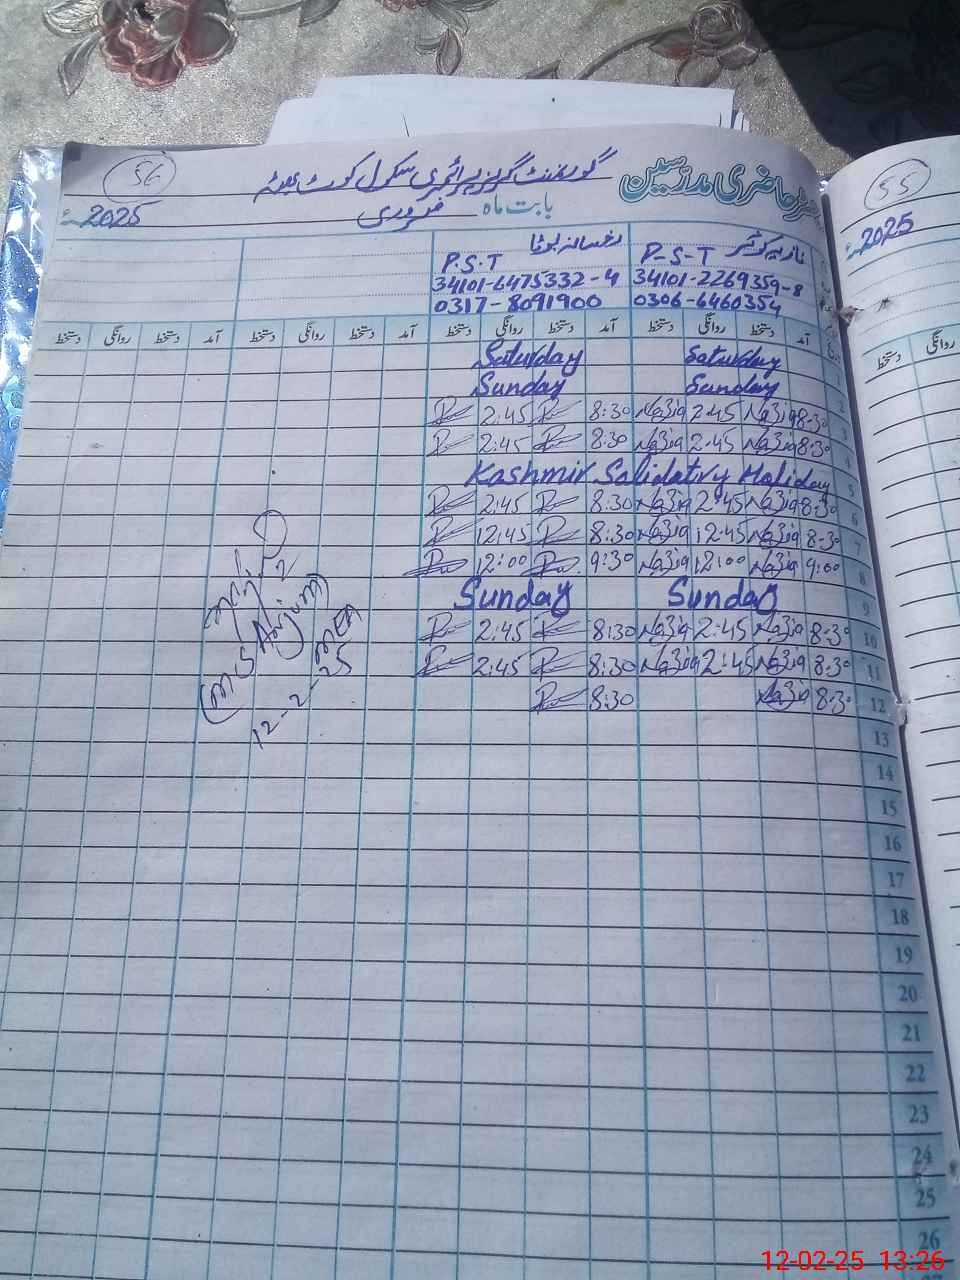 56
گورنمنٹ گرلز پرائمری سکول کوٹ
رجسٹر حاضری مدرسین
2025ء
بابت ماہ فروری
55
2025ء
نازیہ کوثر
P-S-T
34101-2269359-8
0306-6460354
رخسانہ بوٹا
P.S.T
34101-6475332-4
0317-8091900
آمد دستخط روانگی دستخط آمد دستخط روانگی دستخط آمد دستخط روانگی دستخط آمد دستخط روانگی دستخط
روانگی دستخط
1 Saturday Saturday
2 Sunday Sunday
3 8-30 Nazia 2:45 Nazia 8:30 2:45
4 8-30 Nazia 2:45 Nazia 8:30 2:45
5 Kashmir Salidatiry Holiday
6 8-30 Nazia 2:45 Nazia 8:30 2:45
7 8-30 Nazia 12:45 Nazia 8:30 12:45
8 9:00 Nazia 12:00 Nazia 9:30 12:00
9 Sunday Sunday
10 8-30 Nazia 2:45 Nazia 8:30 2:45
11 8-30 Nazia 2:45 Nazia 8:30 2:45
12 8-30 Nazia 8:30
13
14
15
16
17
18
19
20
21
22
23
24
25
26
(MS Anjum)
MEA
12-2-25
12-02-25 13:26